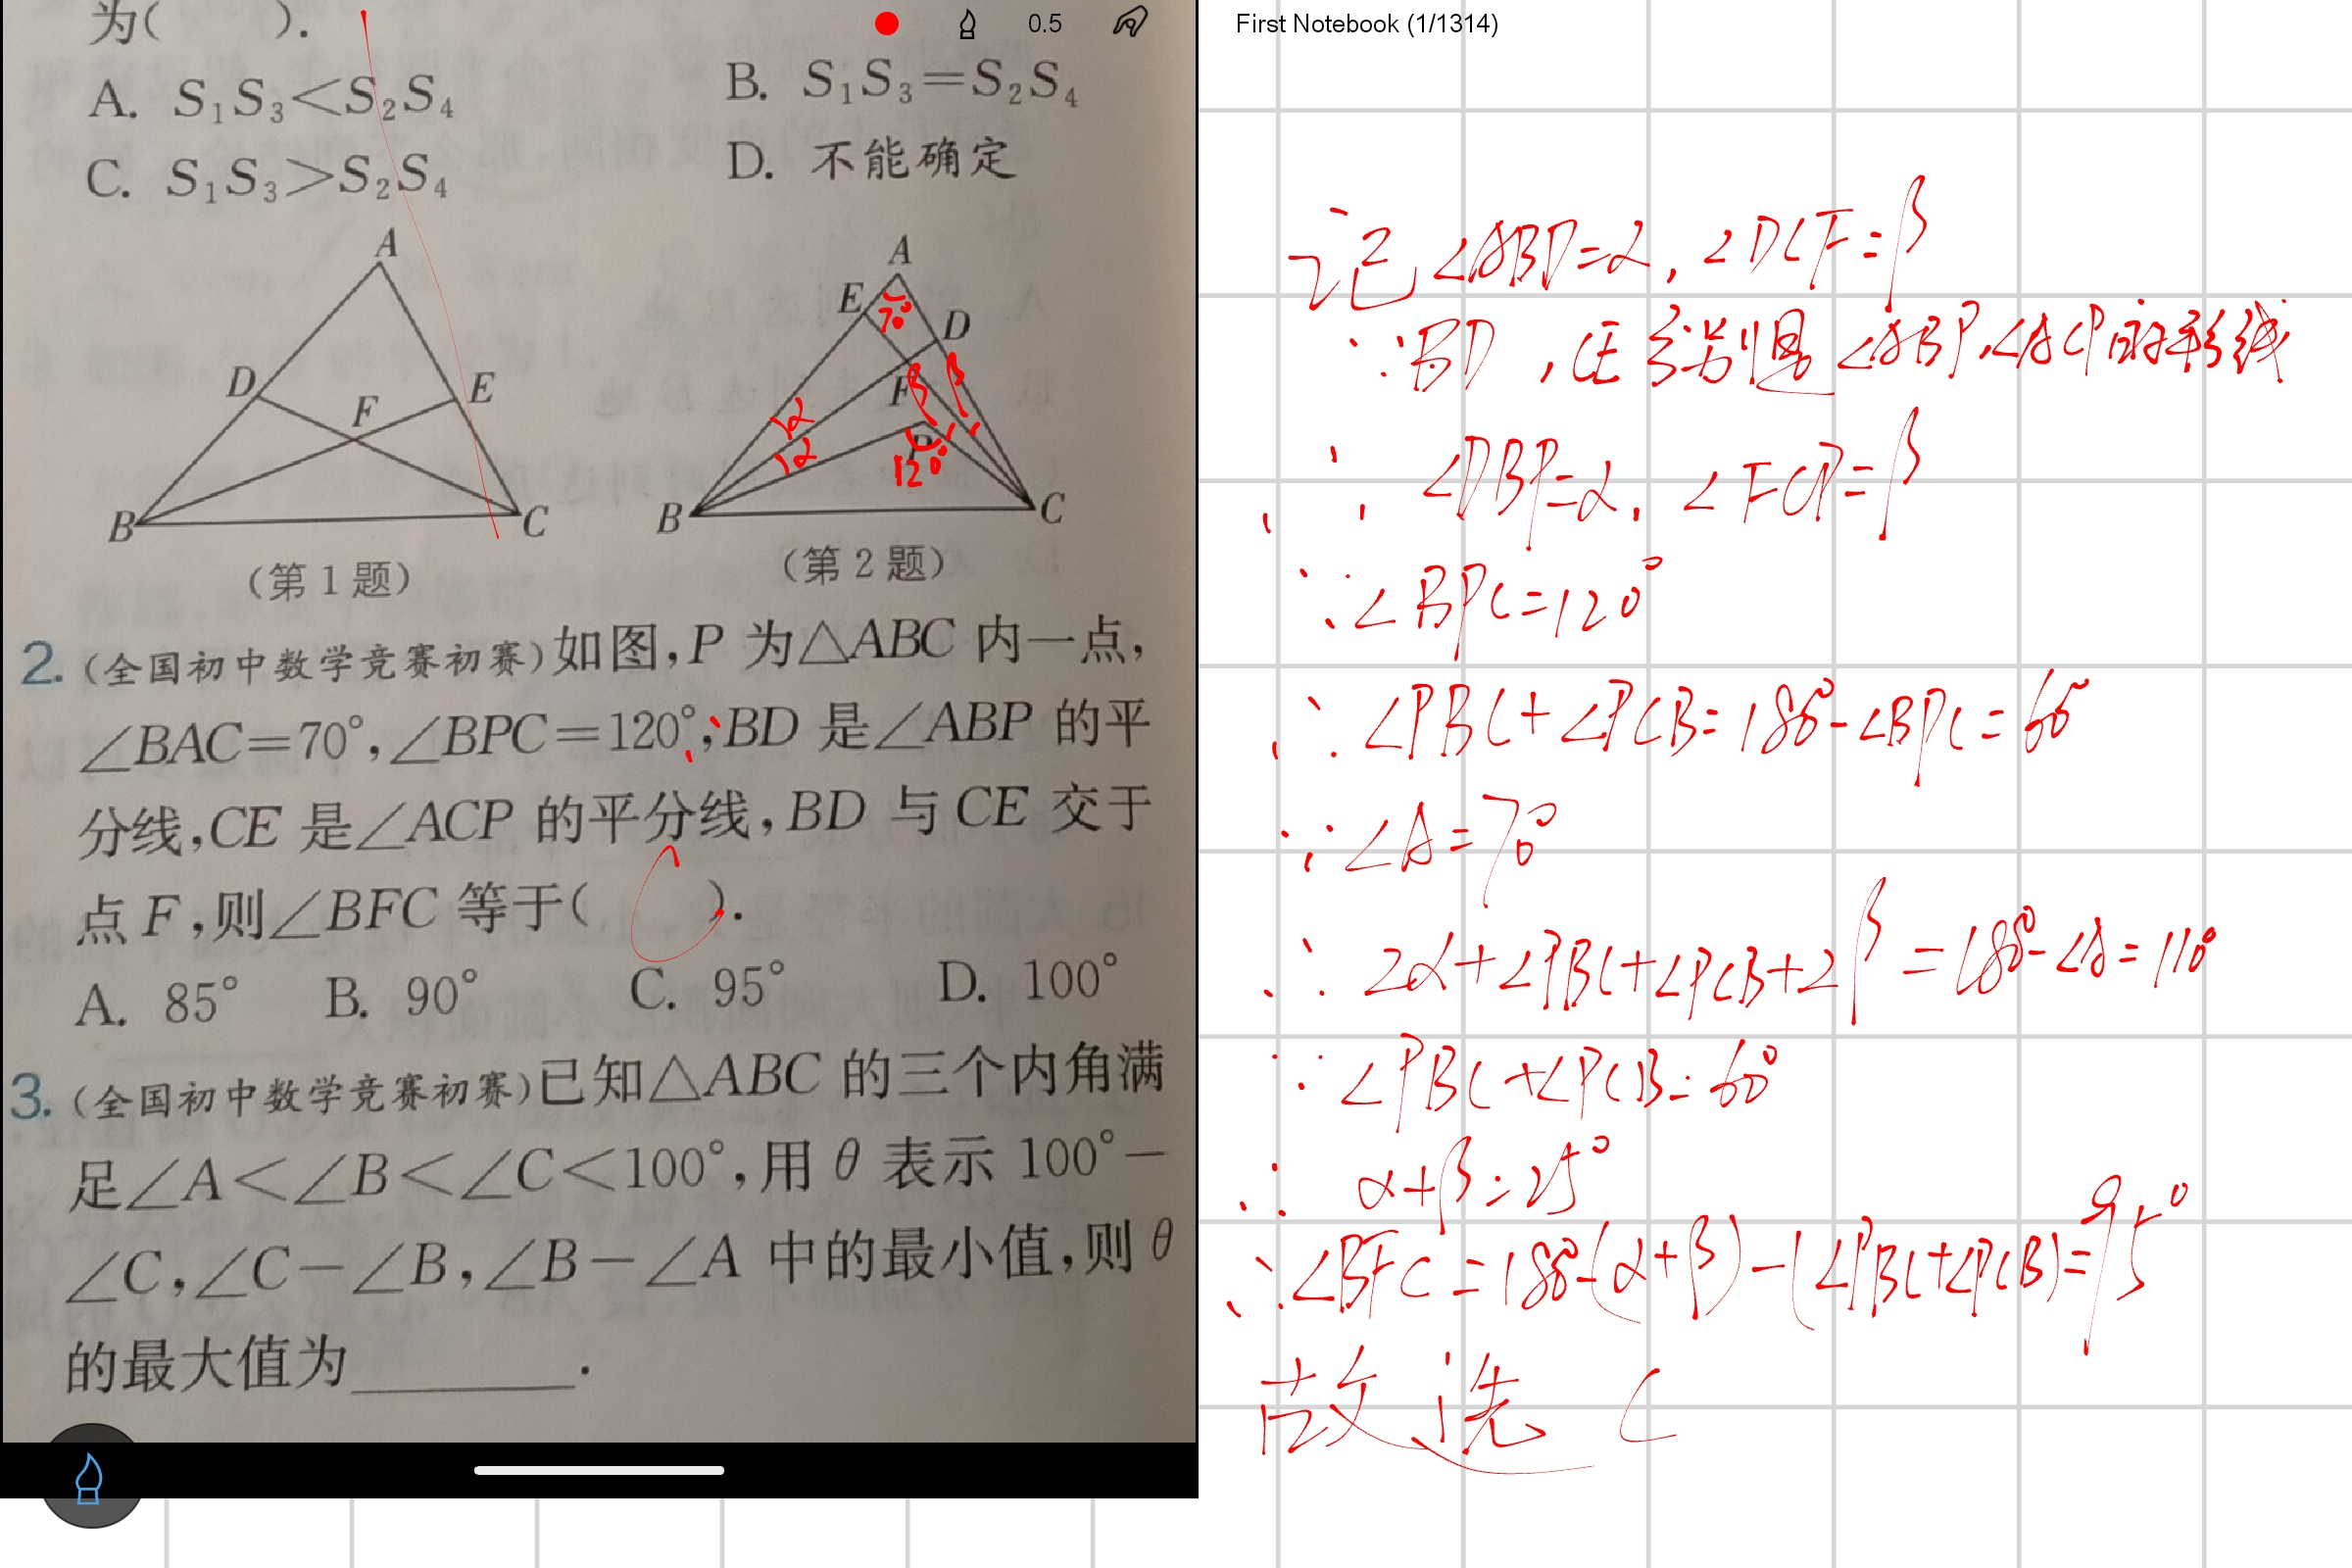 为(    ).
A. S₁S₃<S₂S₄
B. S₁S₃=S₂S₄
C. S₁S₃>S₂S₄
D. 不能确定
A
D
E
F
B
C
(第1题)
A
E
70°
D
F
β
β
α
α
P
120°
B
C
(第2题)
2. (全国初中数学竞赛初赛)如图,P 为△ABC 内一点,
∠BAC=70°,∠BPC=120°;BD 是∠ABP 的平
分线,CE 是∠ACP 的平分线,BD 与 CE 交于
点 F,则∠BFC 等于(    ).
A. 85°  B. 90°  C. 95°  D. 100°
3. (全国初中数学竞赛初赛)已知△ABC 的三个内角满
足∠A<∠B<∠C<100°,用 θ 表示 100°-
∠C,∠C-∠B,∠B-∠A 中的最小值,则 θ
的最大值为________.
0.5
First Notebook (1/1314)
记∠ABD=α, ∠DCF=β
∵BD, CE分别是∠ABP,∠ACP的平分线
∴ ∠DBP=α, ∠FCP=β
∵∠BPC=120°
∴∠PBC+∠PCB=180°-∠BPC=60°
∵∠A=70°
∴ 2α+∠PBC+∠PCB+2β=180°-∠A=110°
∵∠PBC+∠PCB=60°
∴ α+β=25°
∴∠BFC=180°-(α+β)-(∠PBC+∠PCB)=95°
故选 C